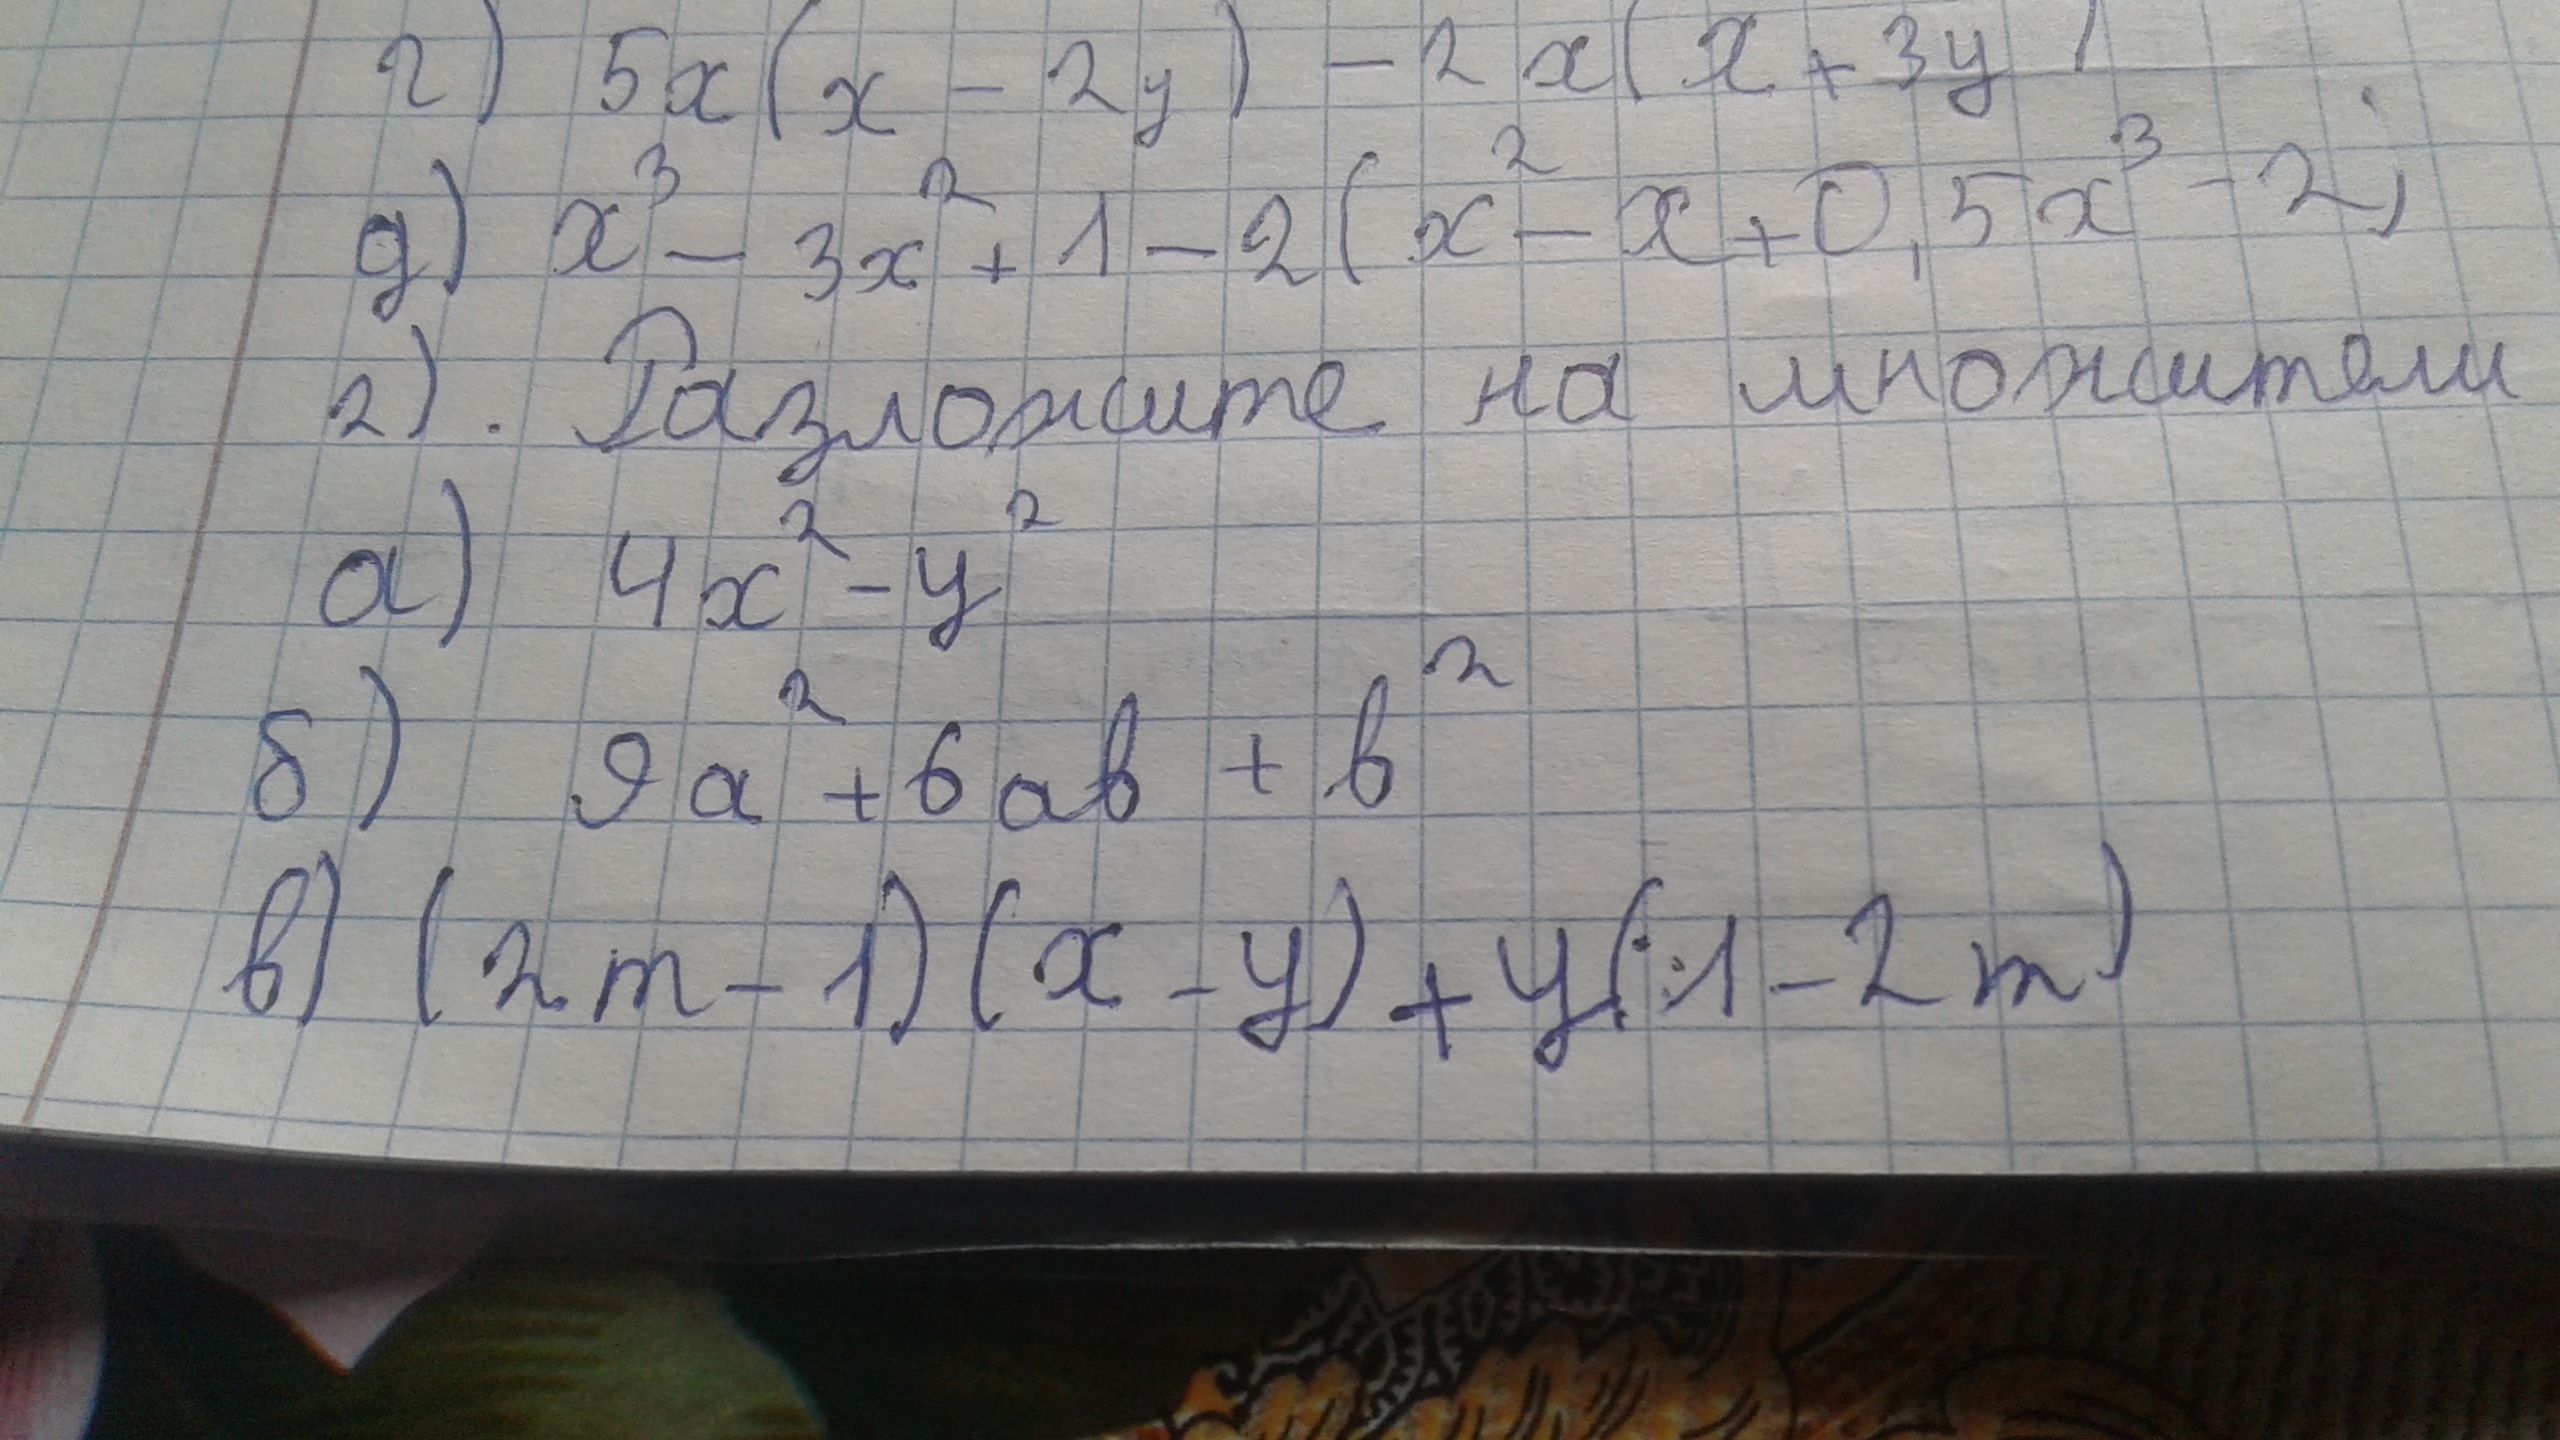 г) 5x(x - 2y) - 2x(x + 3y)
д) x³ - 3x² + 1 - 2(x² - x + 0,5x³ - 2)
2). Разложите на множители
а) 4x² - y²
б) 9a² + 6ab + b²
в) (2m - 1)(x - y) + y(1 - 2m)